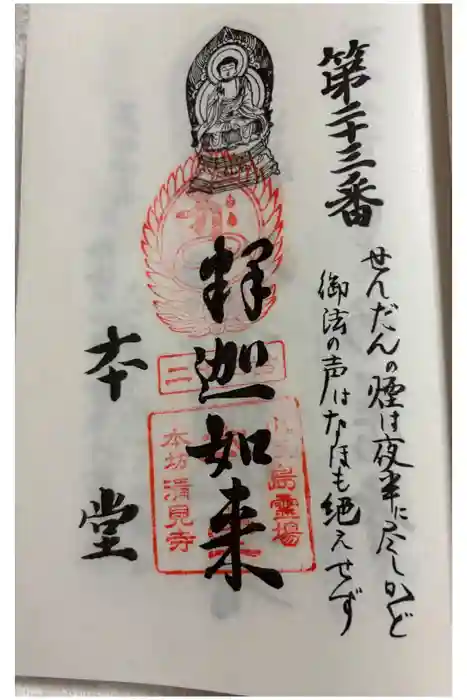 第二十三番
せんだんの煙は夜半に尽しかど
御法の声はなほも絶えせず
釋迦如来
本堂
小豆島霊場
本坊清見寺